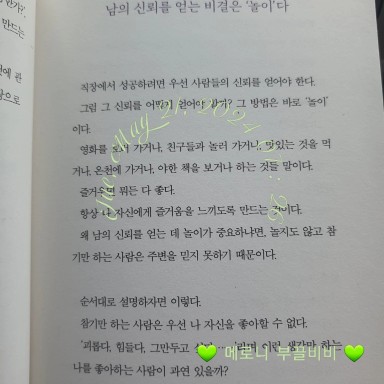 만 하는
만 드는
것에 관
남의 신뢰를 얻는 비결은 '놀이'다
직장에서 성공하려면 우선 사람들의 신뢰를 얻어야 한다.
그럼 그 신뢰를 어떻게 얻어야 할까? 그 방법은 바로 '놀이'
이다.
영화를 보러 가거나, 친구들과 놀러 가거나, 맛있는 것을 먹
거나, 온천에 가거나, 야한 책을 보거나 하는 것들 말이다.
즐거우면 뭐든 다 좋다.
항상 나 자신에게 즐거움을 느끼도록 만드는 것이다.
왜 남의 신뢰를 얻는 데 놀이가 중요하냐면, 놀지도 않고 참
기만 하는 사람은 주변을 믿지 못하기 때문이다.
순서대로 설명하자면 이렇다.
참기만 하는 사람은 우선 나 자신을 좋아할 수 없다.
'괴롭다, 힘들다, 그만두고 이런 생각만 하는
나를 좋아하는 사람이 과연 있을까?
Tue, May 21, 2024
메로니 부끌비비